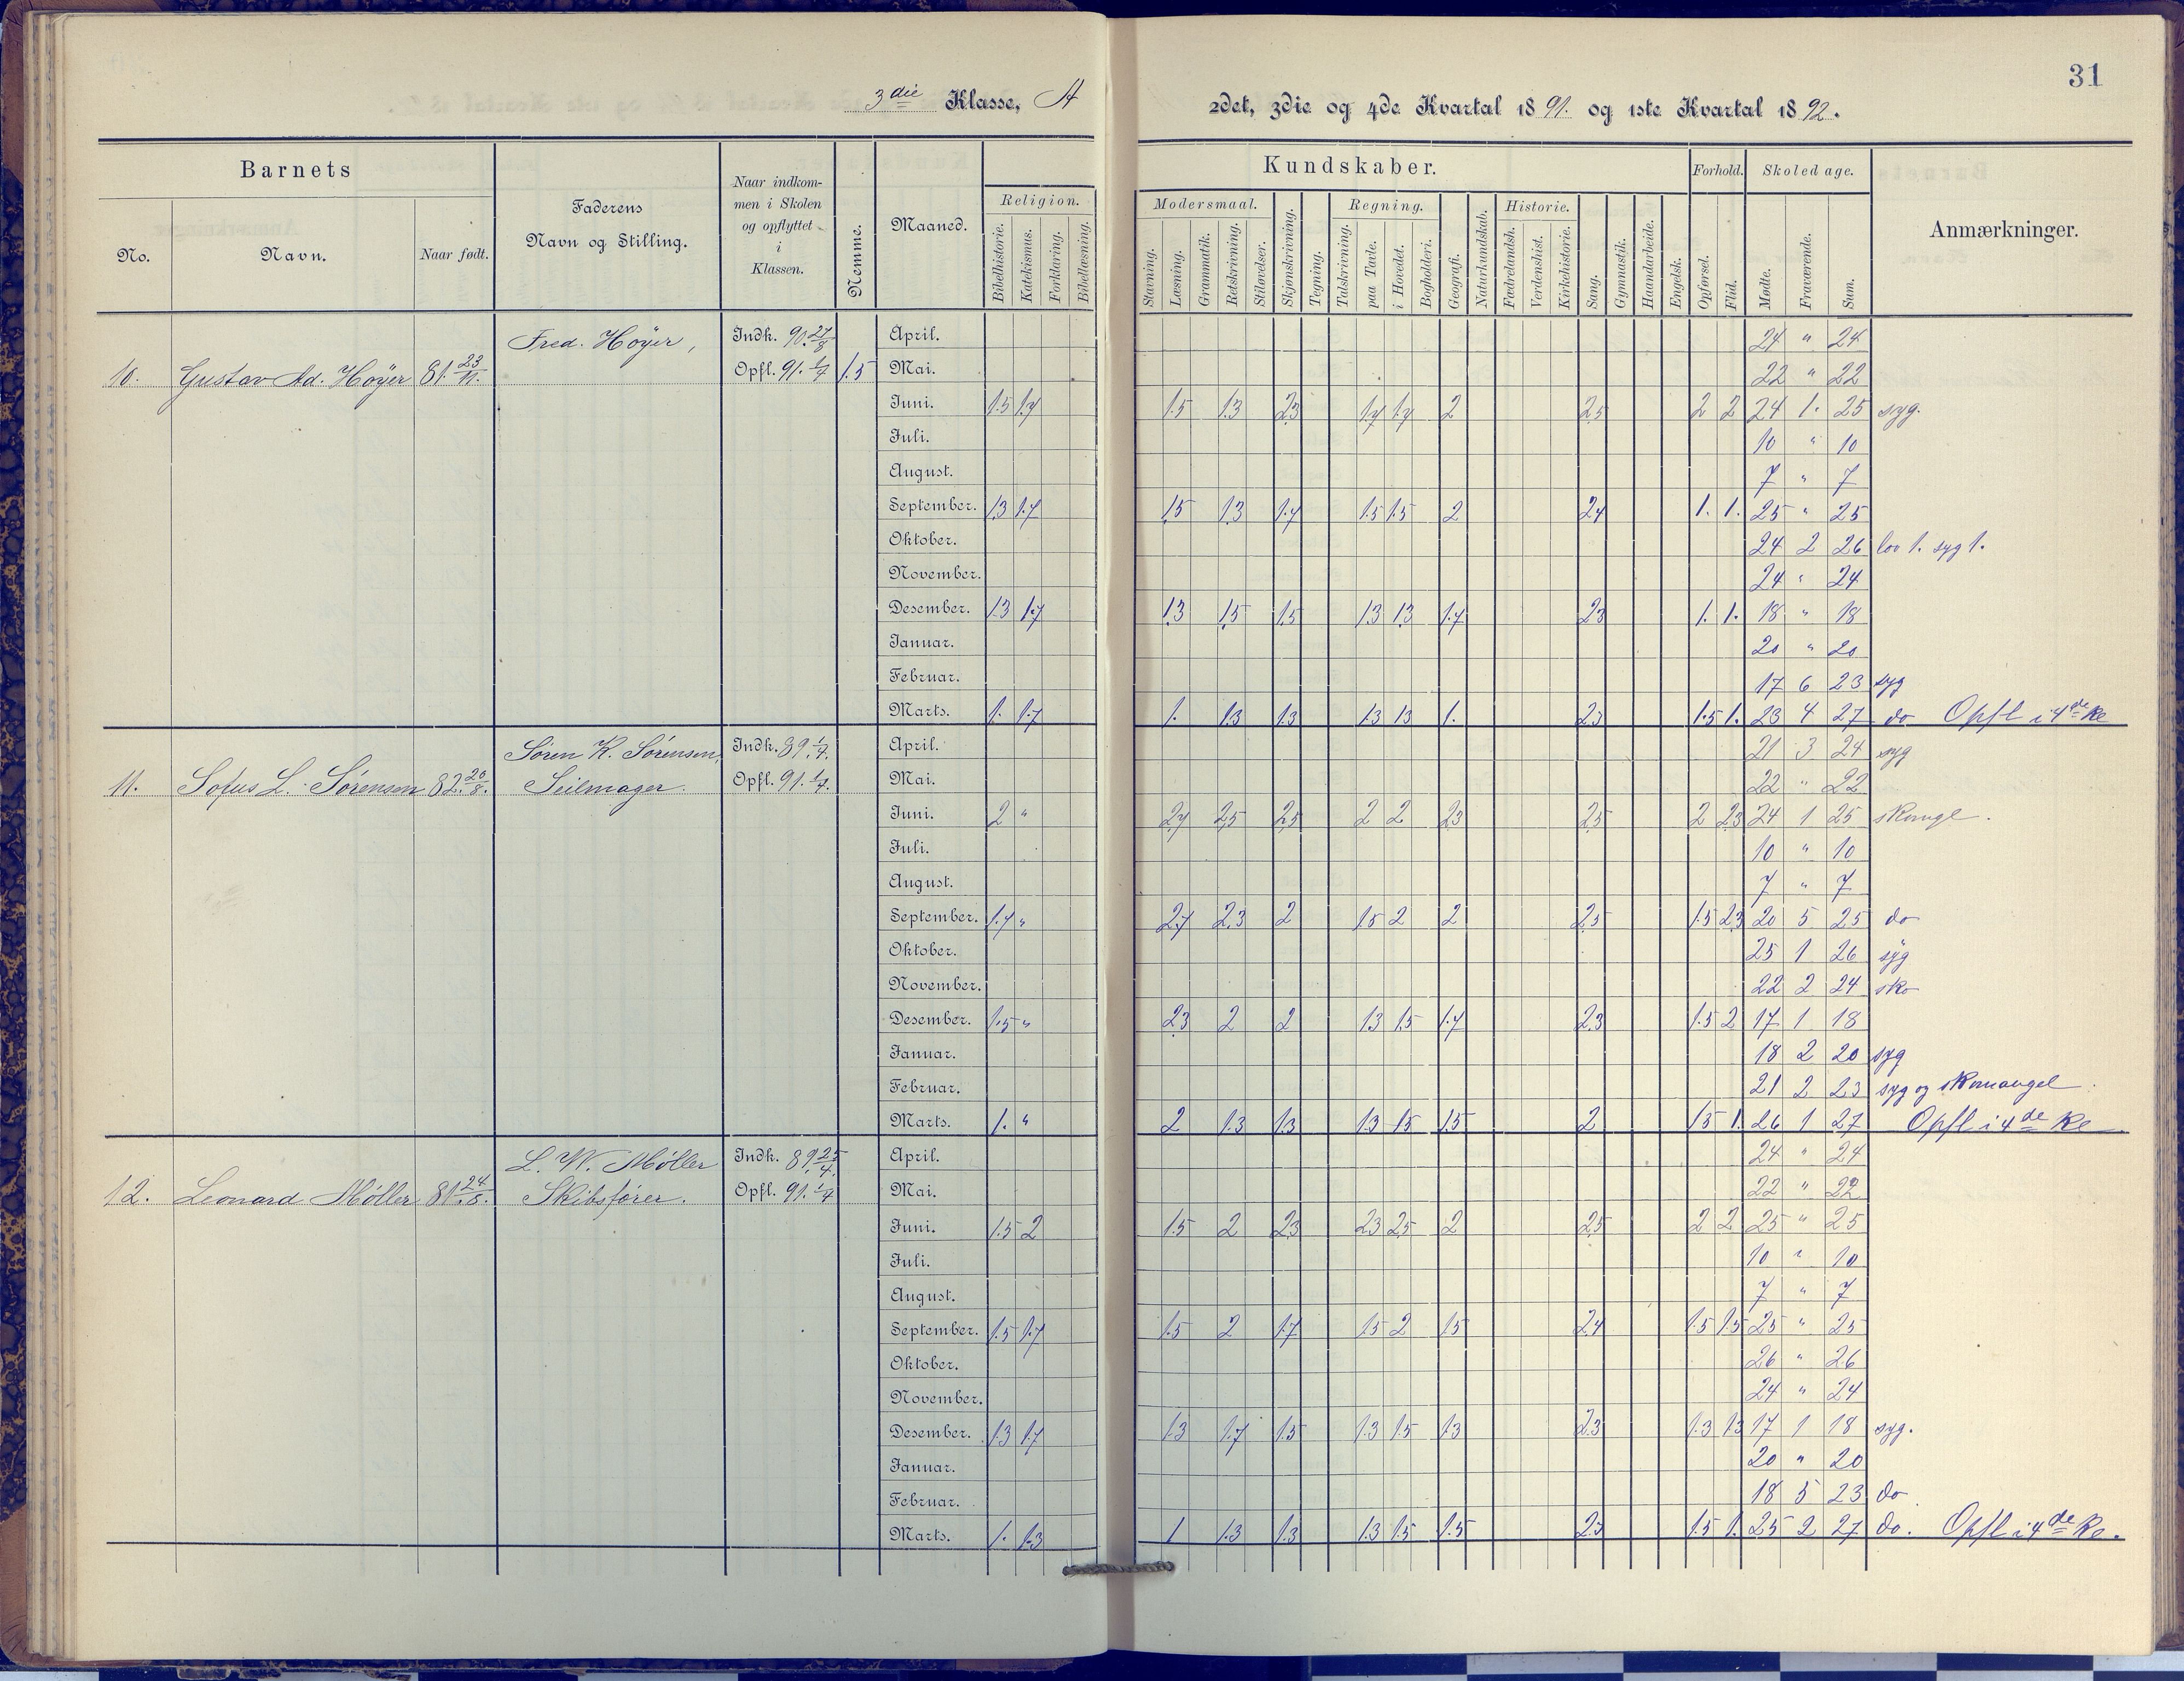 31
3die Klasse, A
2det, 3die og 4de Kvartal 1891. og 1ste Kvartal 1892.
Barnets
No.
Navn.
Naar født.
Faderens
Navn og Stilling.
Naar indkom-
men i Skolen
og opflyttet
i
Klassen.
Nemme.
Maaned.
Religion.
Bibelhistorie.
Katekismus.
Forklaring.
Bibellæsning.
Kundskaber.
Modersmaal.
Stavning.
Læsning.
Grammatik.
Retskrivning.
Stiløvelser.
Skjønskrivning.
Tegning.
Regning.
Talskrivning.
paa Tavle.
i Hovedet.
Bogholderi.
Geografi.
Naturkundskab.
Historie.
Fædrelandsh.
Verdenshist.
Kirkehistorie.
Sang.
Gymnastik.
Haandarbeide.
Engelsk.
Forhold.
Opførsel.
Flid.
Skoledage.
Mødt.
Fraværende.
Sum.
Anmærkninger.
10. Gustav Ad. Høyer 81. 23/11.
Fred. Høyer,
Indk. 90. 27/8
Opfl. 91. 1/4 1.5
April. 24 " 24
Mai. 22 " 22
Juni. 1.5 1.7 1.5 1.3 2.3 1.7 1.7 2 2.5 2 2 24 1. 25 syg.
Juli. 10 " 10
August. 7 " 7
September. 1.3 1.7 1.5 1.3 1.7 1.5 1.5 2 2.4 1. 1. 25 " 25
Oktober. 24 2 26 lov 1. syg 1.
November. 24 " 24
Desember. 1.3 1.7 1.3 1.5 1.5 1.3 1.3 1.7 2.3 1. 1. 18 " 18
Januar. 20 " 20
Februar. 17 6 23 syg
Marts. 1. 1.7 1. 1.3 1.3 1.3 1.3 1. 2.3 1.5 1. 23 4 27 do Opfl i 4de Kl
11. Sofus L. Sørensen 82. 20/8.
Søren K. Sørensen,
Seilmager.
Indk. 89. 1/4.
Opfl. 91. 1/4.
April. 21 3 24 syg
Mai. 22 " 22
Juni. 2 " 2.7 2.5 2.5 2 2 2.3 2.5 2 2.3 24 1 25 skomgl.
Juli. 10 " 10
August. 7 " 7
September. 1.7 " 2.7 2.3 2 1.5 2 2 2.5 1.5 2.3 20 5 25 do
Oktober. 25 1 26 syg
November. 22 2 24 sko
Desember. 1.5 " 2.3 2 2 1.3 1.5 1.7 2.3 1.5 2 17 1 18
Januar. 18 2 20 syg
Februar. 21 2 23 syg og skomangel
Marts. 1. " 2 1.3 1.3 1.3 1.5 1.5 2 1.5 1. 26 1 27 Opfl i 4de Kl
12. Leonard Møller 81. 24/5.
L. W. Møller
Skibsfører.
Indk. 89. 25/4.
Opfl. 91. 1/4
April. 24 " 24
Mai. 22 " 22
Juni. 1.5 2 1.5 2 2.3 2.3 2.5 2 2.5 2 2 25 " 25
Juli. 10 " 10
August. 7 " 7
September. 1.5 1.7 1.5 2 1.7 1.5 2 1.5 2.4 1.5 1.5 25 " 25
Oktober. 26 " 26
November. 24 " 24
Desember. 1.3 1.7 1.3 1.7 1.5 1.3 1.5 1.3 2.3 1.3 1.3 17 1 18 syg.
Januar. 20 " 20
Februar. 18 5 23 do
Marts. 1. 1.3 1 1.3 1.3 1.3 1.5 1.5 2.3 1.5 1. 25 2 27 do. Opfl i 4de Kl.